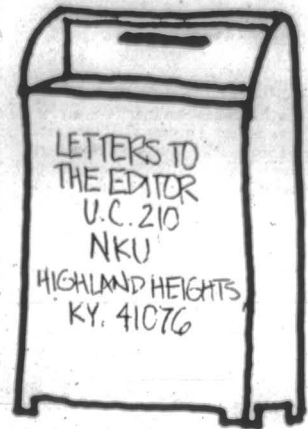 LETTERS TO
THE EDITOR
U.C. 210
NKU
HIGHLAND HEIGHTS
KY. 41076